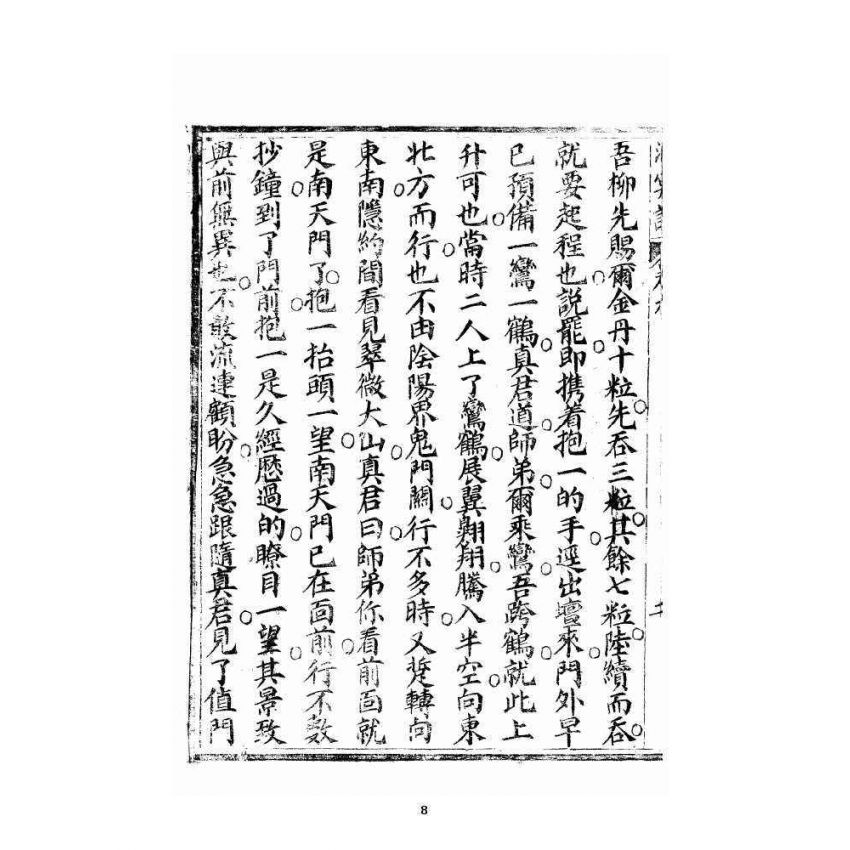 吾柳先賜爾金丹十粒先吞三粒其餘七粒陸續而吞
就要起程也説罷即携着抱一的手逕出壇來門外早
已預備一鸞一鶴真君道師弟爾乘鸞吾跨鶴就此上
升可也當時二人上了鸞鶴展翼翱翔騰入半空向東
北方而行也不由陰陽界鬼門關行不多時又㨄轉向
東南隱約間看見翠微大山真君曰師弟你看前面就
是南天門了抱一抬頭一望南天門已在面前行不数
抄鐘到了門前抱一是久經歷過的瞭目一望其景致
與前無異也不敢流連顧盼急急跟隨真君見了值門
8